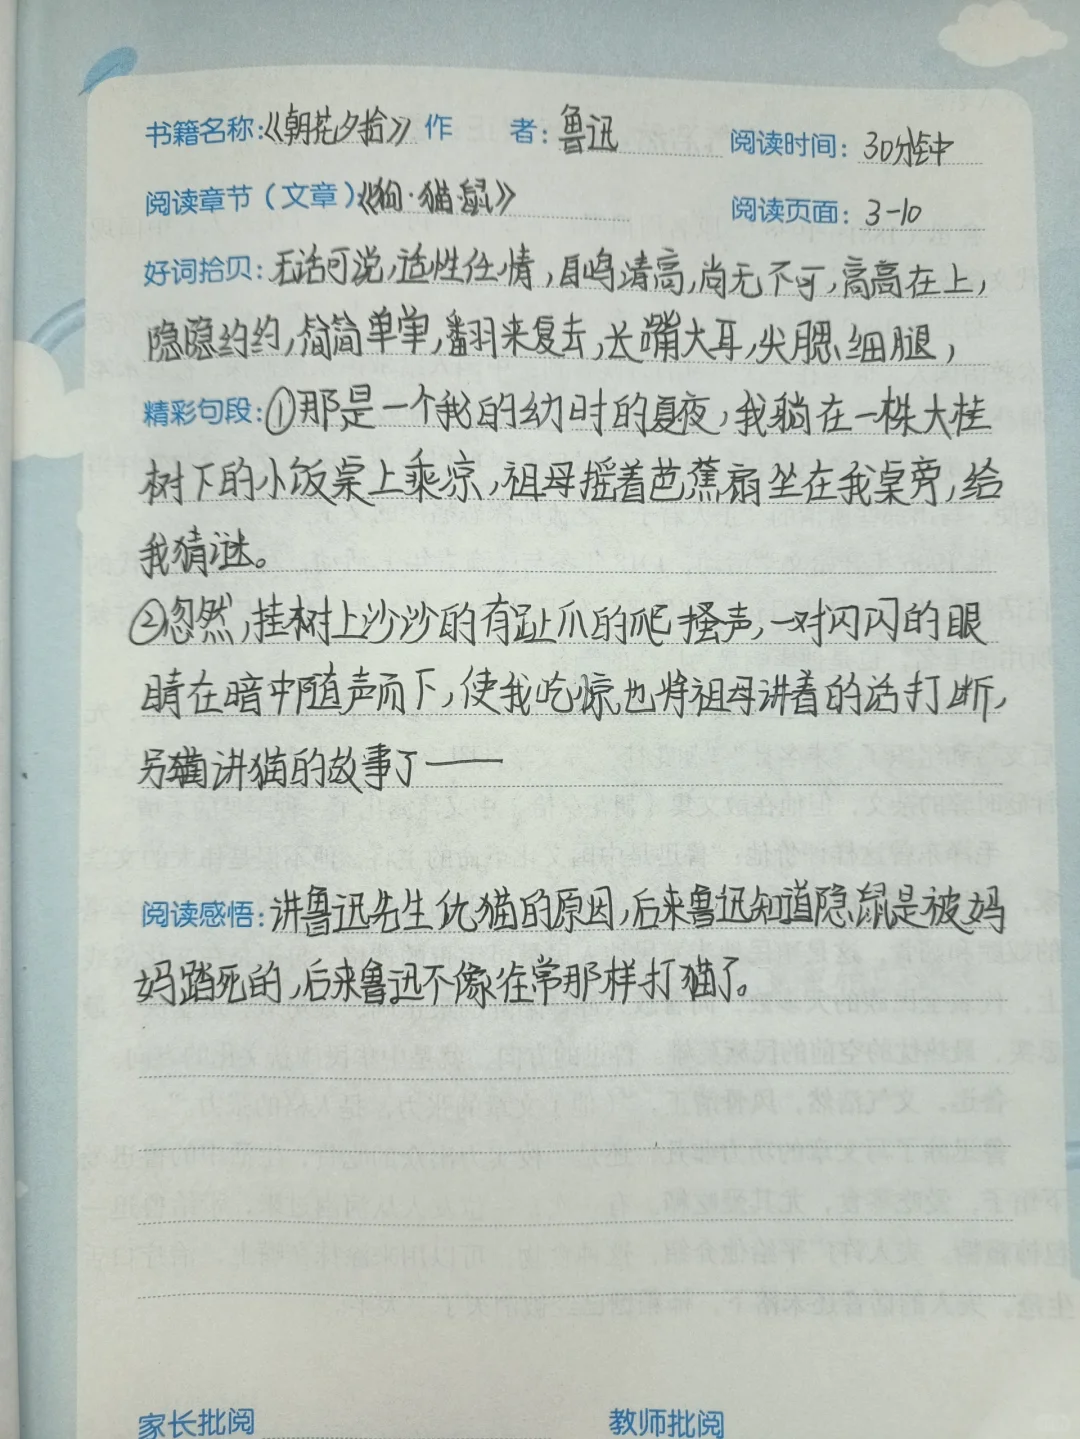 书籍名称:《朝花夕拾》 作 者:鲁迅 阅读时间:30分钟
阅读章节(文章)《狗·猫·鼠》 阅读页面:3-10
好词拾贝:无话可说,适性任情,自鸣清高,尚无不可,高高在上,
隐隐约约,简简单单,翻来复去,长嘴大耳,尖腮细腿,
精彩句段:①那是一个我的幼时的夏夜,我躺在一株大桂
树下的小饭桌上乘凉,祖母摇着芭蕉扇坐在我桌旁,给
我猜谜。
②忽然,挂树上沙沙的有趾爪的爬搔声,一对闪闪的眼
睛在暗中随声而下,使我吃惊也将祖母讲着的话打断,
另讲猫的故事了——
阅读感悟:讲鲁迅先生仇猫的原因,后来鲁迅知道隐鼠是被妈
妈踏死的,后来鲁迅不像往常那样打猫了。
家长批阅 教师批阅